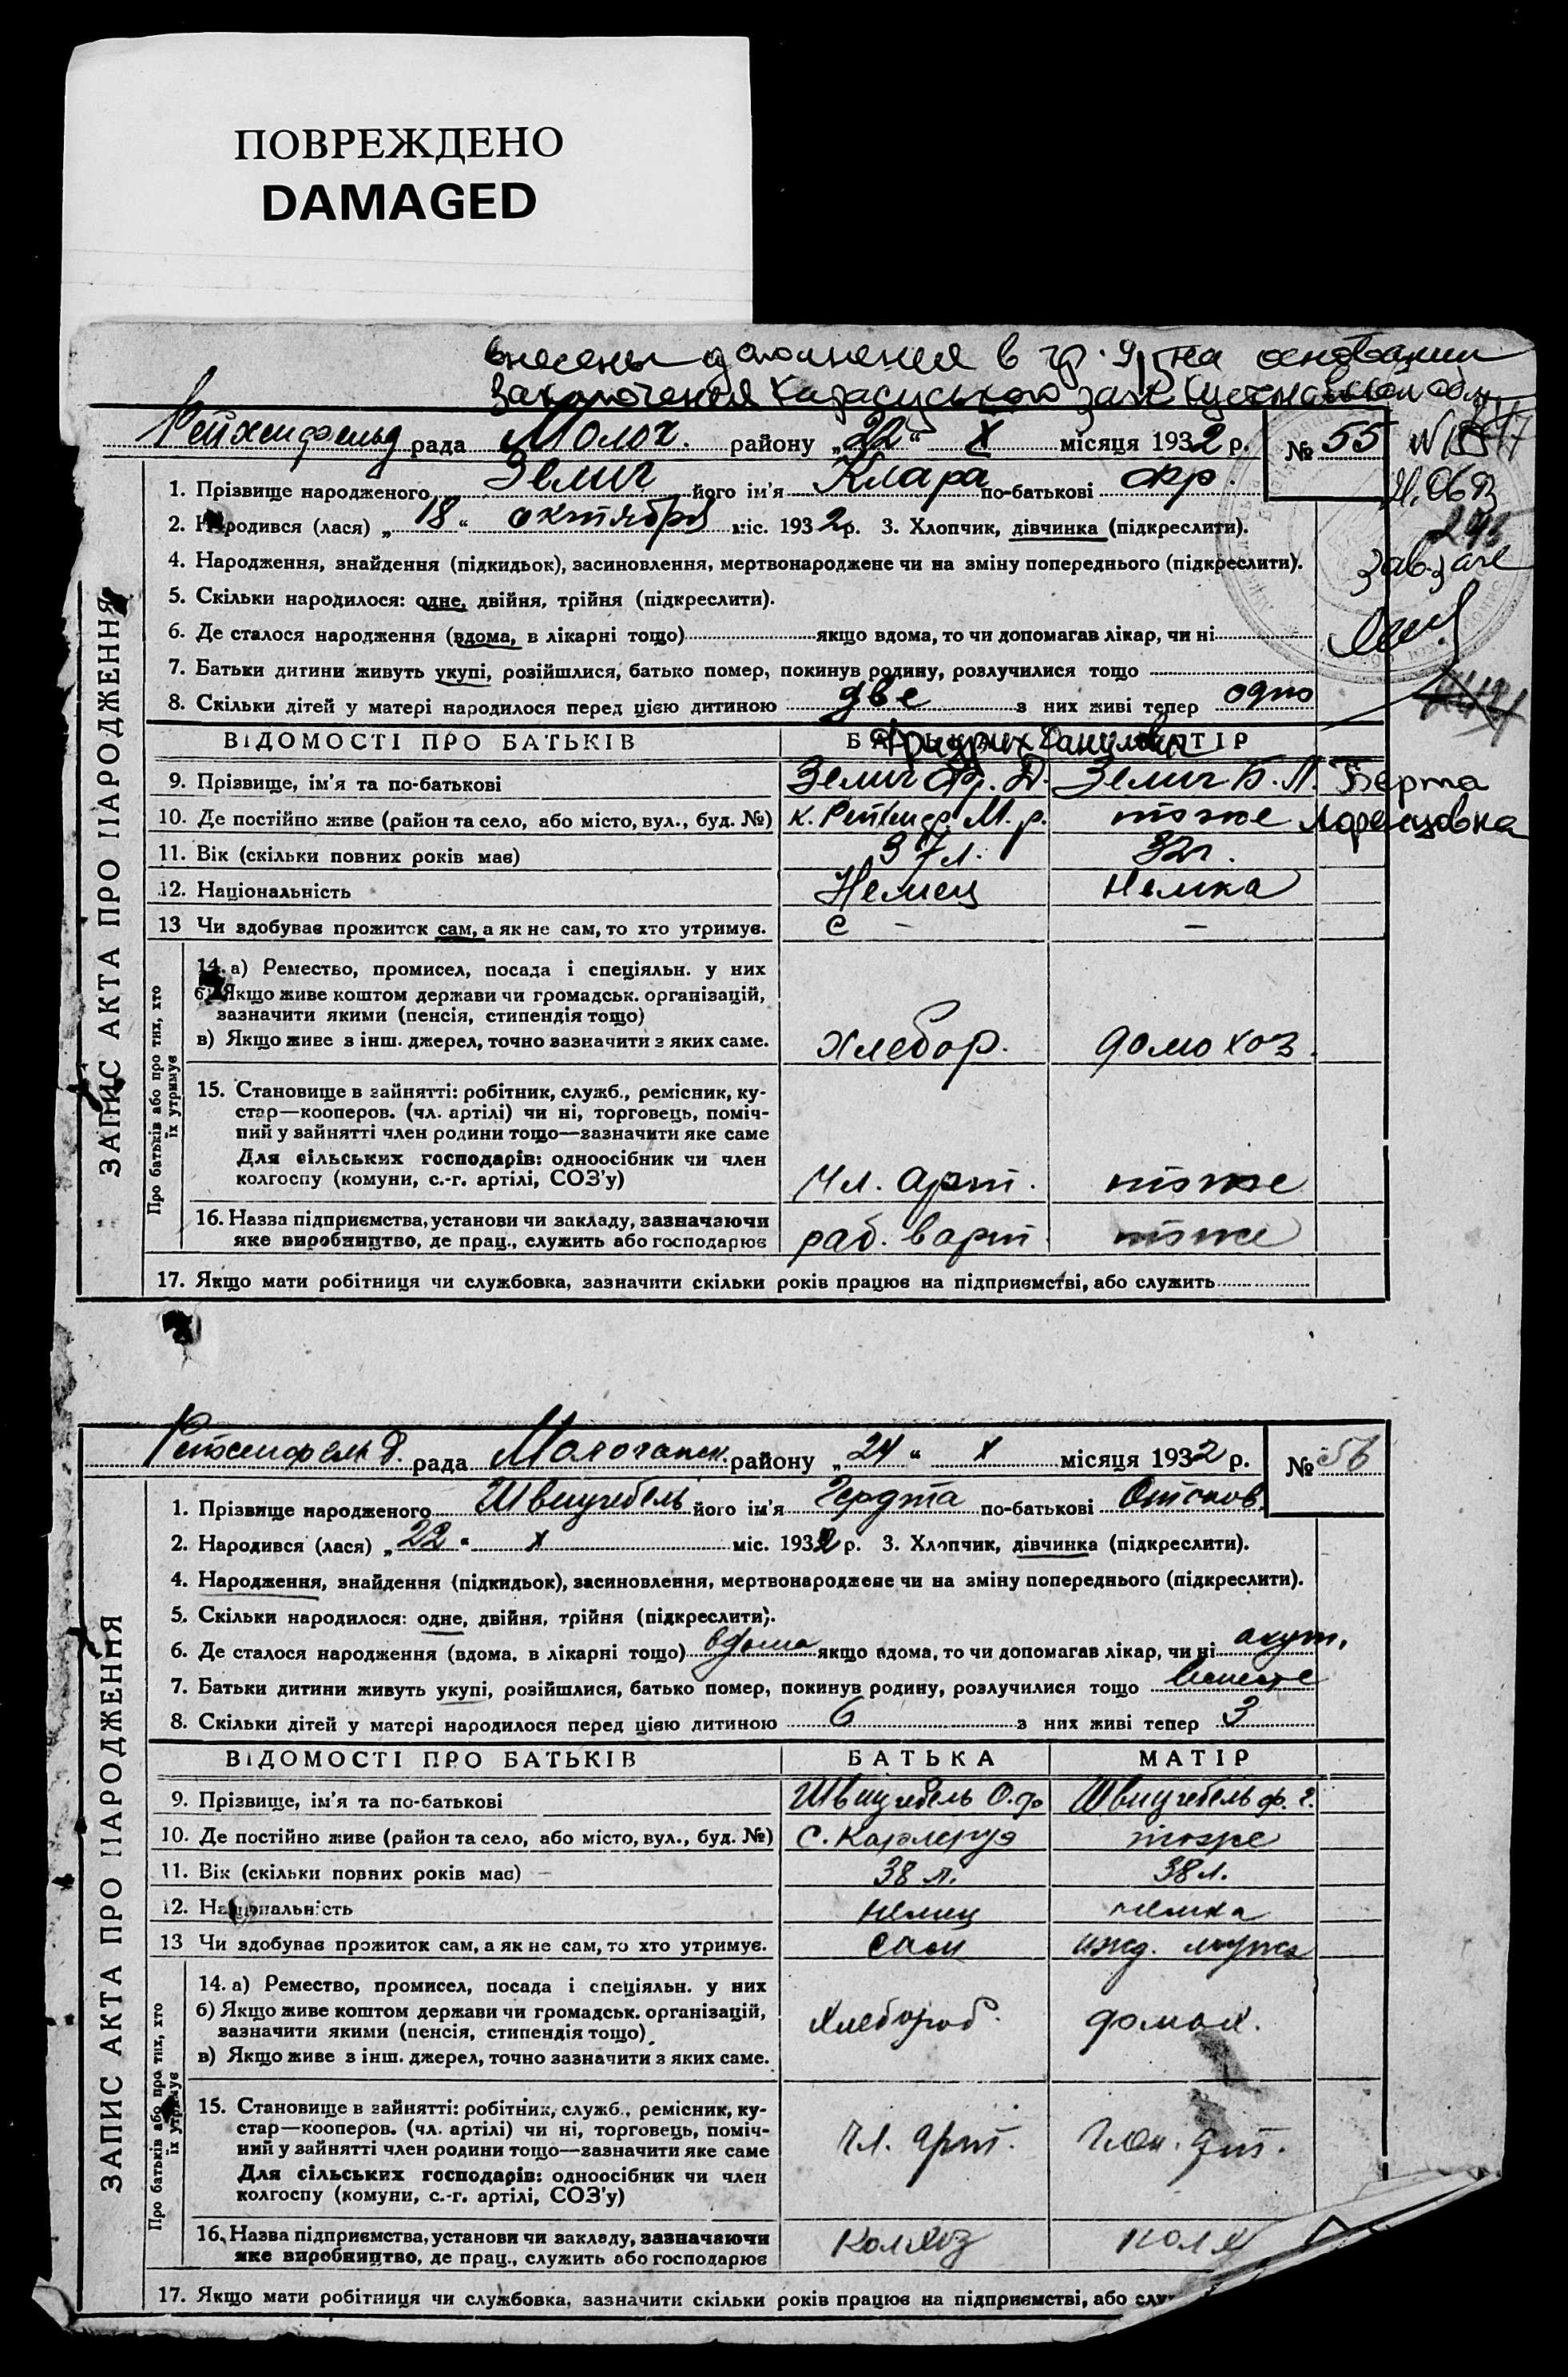 ПОВРЕЖДЕНО
DAMAGED
внесены дополнения в гр. 9 на основании
заключения Карасуського загс Кустанайской обл.
Рейхенфельд рада Молоч. району „22“ X місяця 1932 р. № 55
1. Прізвище народженого Зелиг його ім'я Клара по-батькові Фр.
2. Народився (лася) „18“ октября міс. 1932 р. 3. Хлопчик, дівчинка (підкреслити).
4. Народження, знайдення (підкидьок), засиновлення, мертвонароджене чи на зміну попереднього (підкреслити).
зав. загс
5. Скільки народилося: одне, двійня, трійня (підкреслити).
6. Де сталося народження (вдома, в лікарні тощо) якщо вдома, то чи допомагав лікар, чи ні
7. Батьки дитини живуть укупі, розійшлися, батько помер, покинув родину, розлучилися тощо
8. Скільки дітей у матері народилося перед цією дитиною две з них живі тепер одно
ВІДОМОСТІ ПРО БАТЬКІВ БАТЬКА МАТІР
Фридрих Данилович
9. Прізвище, ім'я та по-батькові Зелиг Фр. Д. Зелиг Б. Л. Берта
10. Де постійно живе (район та село, або місто, вул., буд. №) М. р. тоже Лоренцовна
11. Вік (скільки повних років має) 37 л. 32 г.
12. Національність Немец Немка
13 Чи здобуває прожиток сам, а як не сам, то хто утримує. С – –
14. а) Ремество, промисел, посада і спеціяльн. у них
б) Якщо живе коштом держави чи громадськ. організацій,
зазначити якими (пенсія, стипендія тощо)
в) Якщо живе з інш. джерел, точно зазначити з яких саме. хлебор. домохоз.
15. Становище в зайнятті: робітник, служб., ремісник, ку-
стар—кооперов. (чл. артілі) чи ні, торговець, поміч-
ний у зайнятті член родини тощо—зазначити яке саме
Для сільських господарів: одноосібник чи член
колгоспу (комуни, с.-г. артілі, СОЗ'у) Чл. арт. тоже
16. Назва підприємства, установи чи закладу, зазначаючи
яке виробництво, де прац., служить або господарює раб. в арт. тоже
17. Якщо мати робітниця чи службовка, зазначити скільки років працює на підприємстві, або служить
ЗАПИС АКТА ПРО НАРОДЖЕННЯ
Про батьків або про тих, хто
їх утримує
рада Молочанск. району „24“ X місяця 1932 р. № 56
1. Прізвище народженого Швицгебель його ім'я Гердта по-батькові Оттонов.
2. Народився (лася) „22“ X міс. 1932 р. 3. Хлопчик, дівчинка (підкреслити).
4. Народження, знайдення (підкидьок), засиновлення, мертвонароджене чи на зміну попереднього (підкреслити).
5. Скільки народилося: одне, двійня, трійня (підкреслити).
6. Де сталося народження (вдома, в лікарні тощо) вдома якщо вдома, то чи допомагав лікар, чи ні акуш.
7. Батьки дитини живуть укупі, розійшлися, батько помер, покинув родину, розлучилися тощо вместе
8. Скільки дітей у матері народилося перед цією дитиною 6 з них живі тепер 3
ВІДОМОСТІ ПРО БАТЬКІВ БАТЬКА МАТІР
9. Прізвище, ім'я та по-батькові Швицгебель О. Ф. Швицгебель Ф. Г.
10. Де постійно живе (район та село, або місто, вул., буд. №) С. Карлсруэ тоже
11. Вік (скільки повних років має) 38 л. 38 л.
12. Національність немец немка
13 Чи здобуває прожиток сам, а як не сам, то хто утримує. сам ижд. мужа
14. а) Ремество, промисел, посада і спеціяльн. у них
б) Якщо живе коштом держави чи громадськ. організацій,
зазначити якими (пенсія, стипендія тощо)
в) Якщо живе з інш. джерел, точно зазначити з яких саме. хлебороб. домох.
15. Становище в зайнятті: робітник, служб., ремісник, ку-
стар—кооперов. (чл. артілі) чи ні, торговець, поміч-
ний у зайнятті член родини тощо—зазначити яке саме
Для сільських господарів: одноосібник чи член
колгоспу (комуни, с.-г. артілі, СОЗ'у) Чл. арт. Член. арт.
16. Назва підприємства, установи чи закладу, зазначаючи
яке виробництво, де прац., служить або господарює Колхоз колх
17. Якщо мати робітниця чи службовка, зазначити скільки років працює на підприємстві, або слу
ЗАПИС АКТА ПРО НАРОДЖЕННЯ
Про батьків або про тих, хто
їх утримує